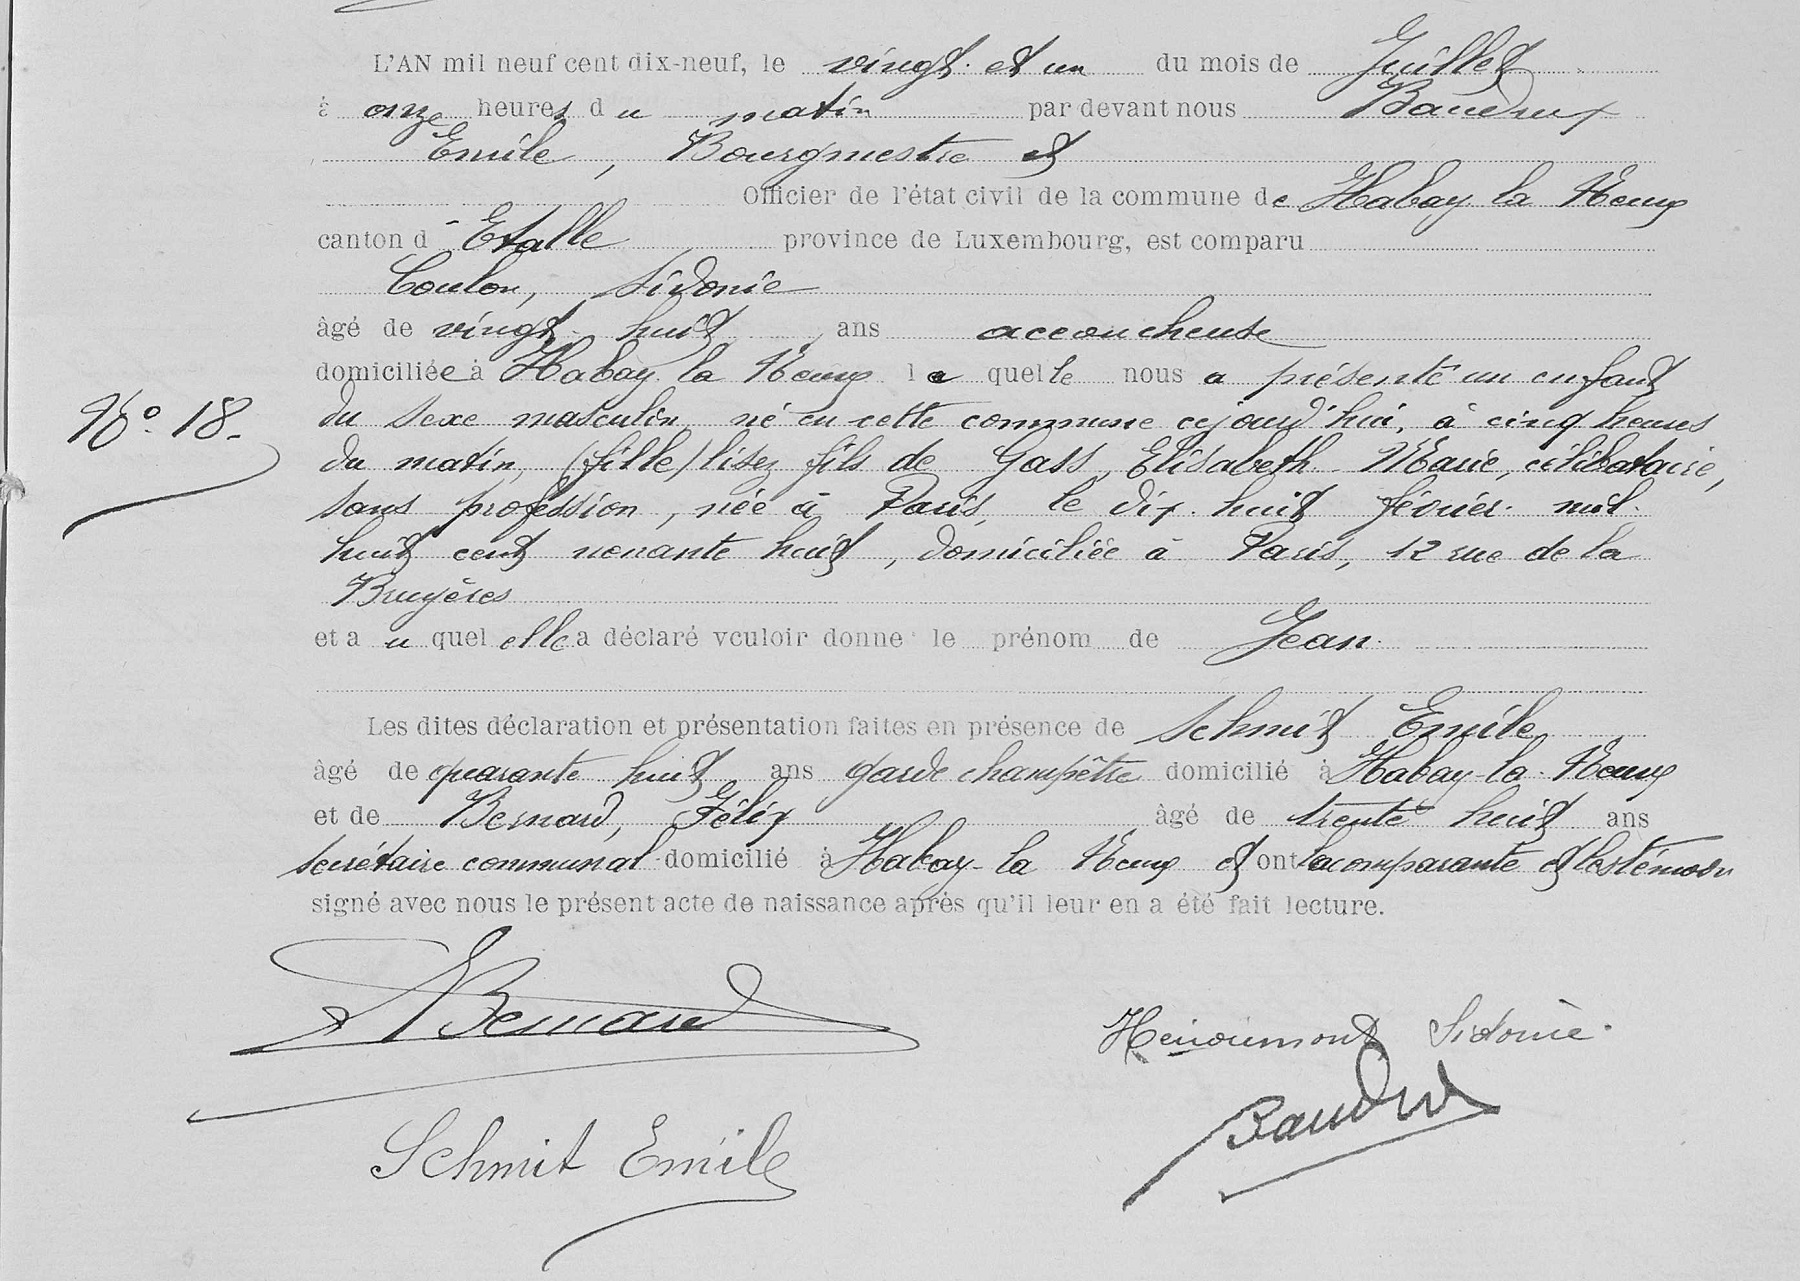 L'AN mil neuf cent dix-neuf, le vingt et un du mois de Juillet
à onze heures du matin par devant nous Baudrux
Emile, Bourgmestre et
Officier de l'état civil de la commune de Habay la Neuve
canton d'Etalle province de Luxembourg, est comparu
Coulon, Sidonie
âgé de vingt huit ans accoucheuse
domiciliée à Habay la Neuve laquelle nous a présenté un enfant
N° 18.
du sexe masculin, né en cette commune cejourd'hui, à cinq heures
du matin, (fille) lisez fils de Gass, Elisabeth Marie, célibataire,
sans profession, née à Paris, le dix-huit février mil
huit cent nonante huit, domiciliée à Paris, 12 rue de la
Bruyères
et au quel elle a déclaré vouloir donner le prénom de Jean
Les dites déclaration et présentation faites en présence de Schmit Emile
âgé de quarante huit ans garde champêtre domicilié à Habay-la-Neuve
et de Bernard, Félix âgé de trente huit ans
secrétaire communal domicilié à Habay-la Neuve et ont la comparante et les témoins
signé avec nous le présent acte de naissance après qu'il leur en a été fait lecture.
Bernard
Sidonie
Baudrux
Schmit Emile